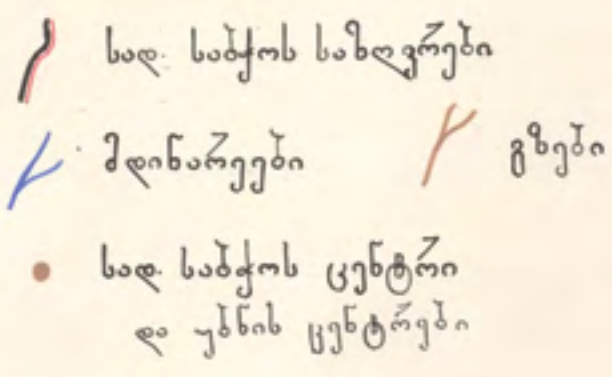 სად. საბჭოს საზღვრები
მდინარეები
გზები
სად. საბჭოს ცენტრი
და უბნის ცენტრები